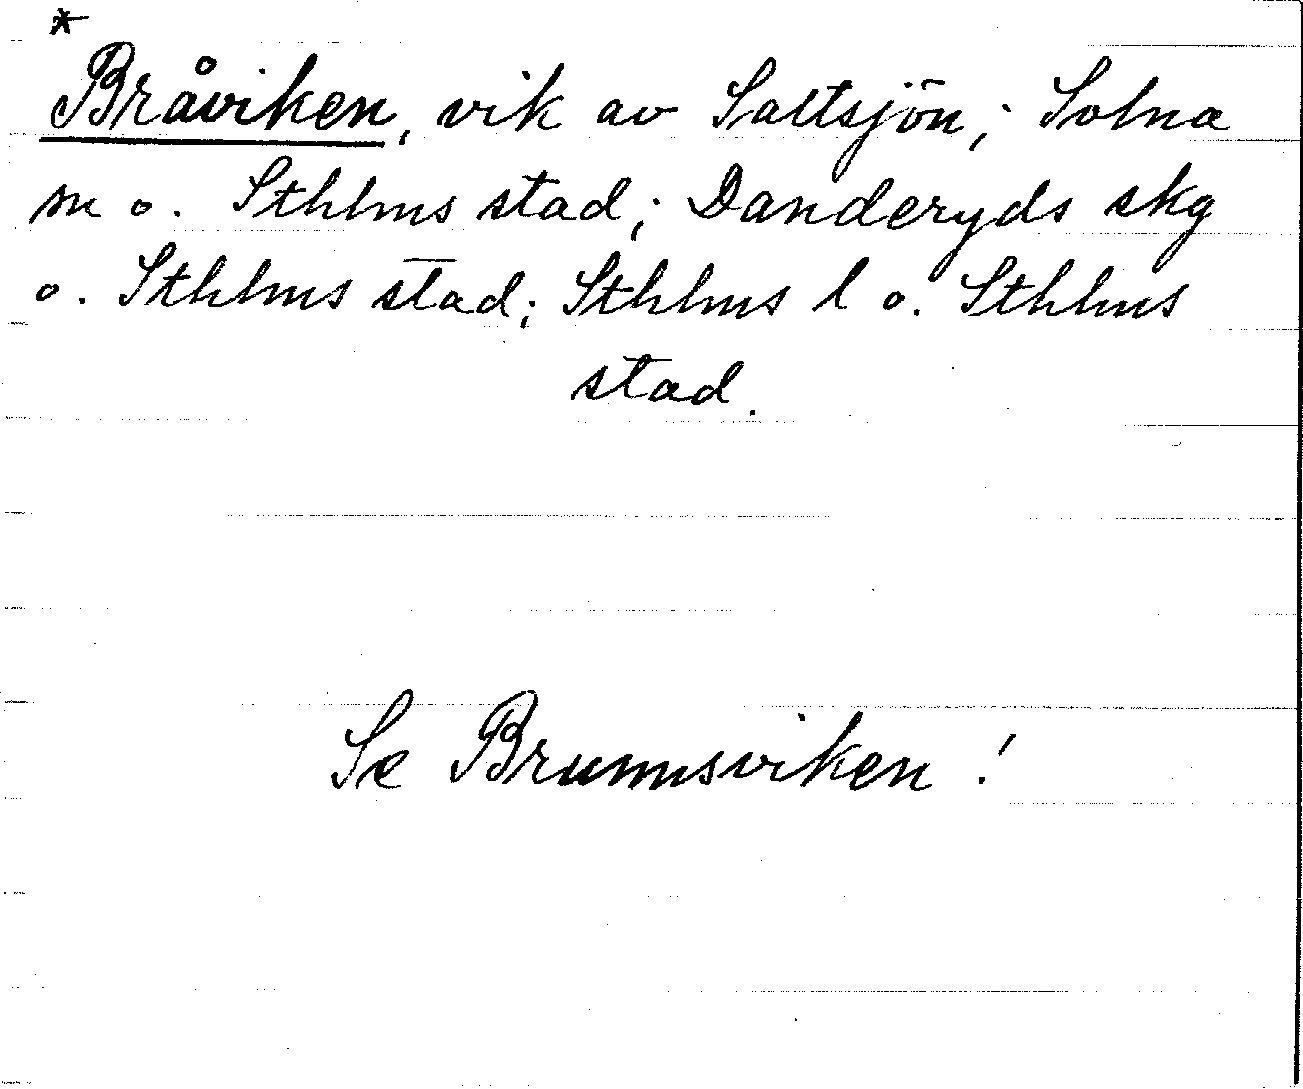 *
Bråviken, vik av Saltsjön; Solna
sn o. Sthlms stad; Danderyds skg
o. Sthlms stad; Sthlms l o. Sthlms
stad.
Se Brunnsviken!